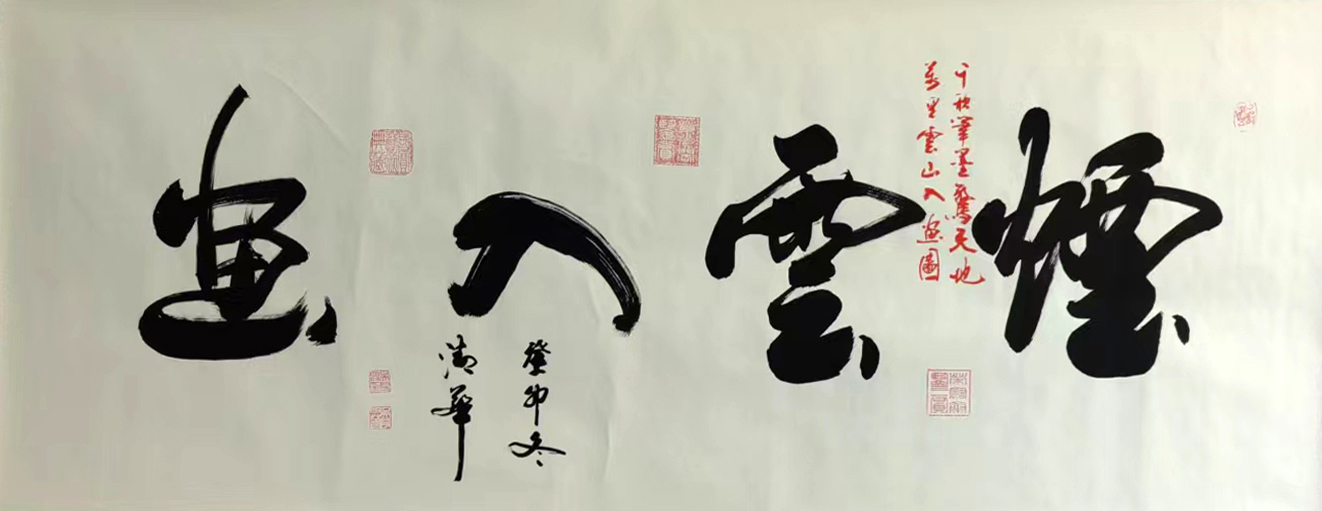 煙雲入畫
千秋筆墨驚天地
萬里雲山入畫圖
癸卯冬
清華